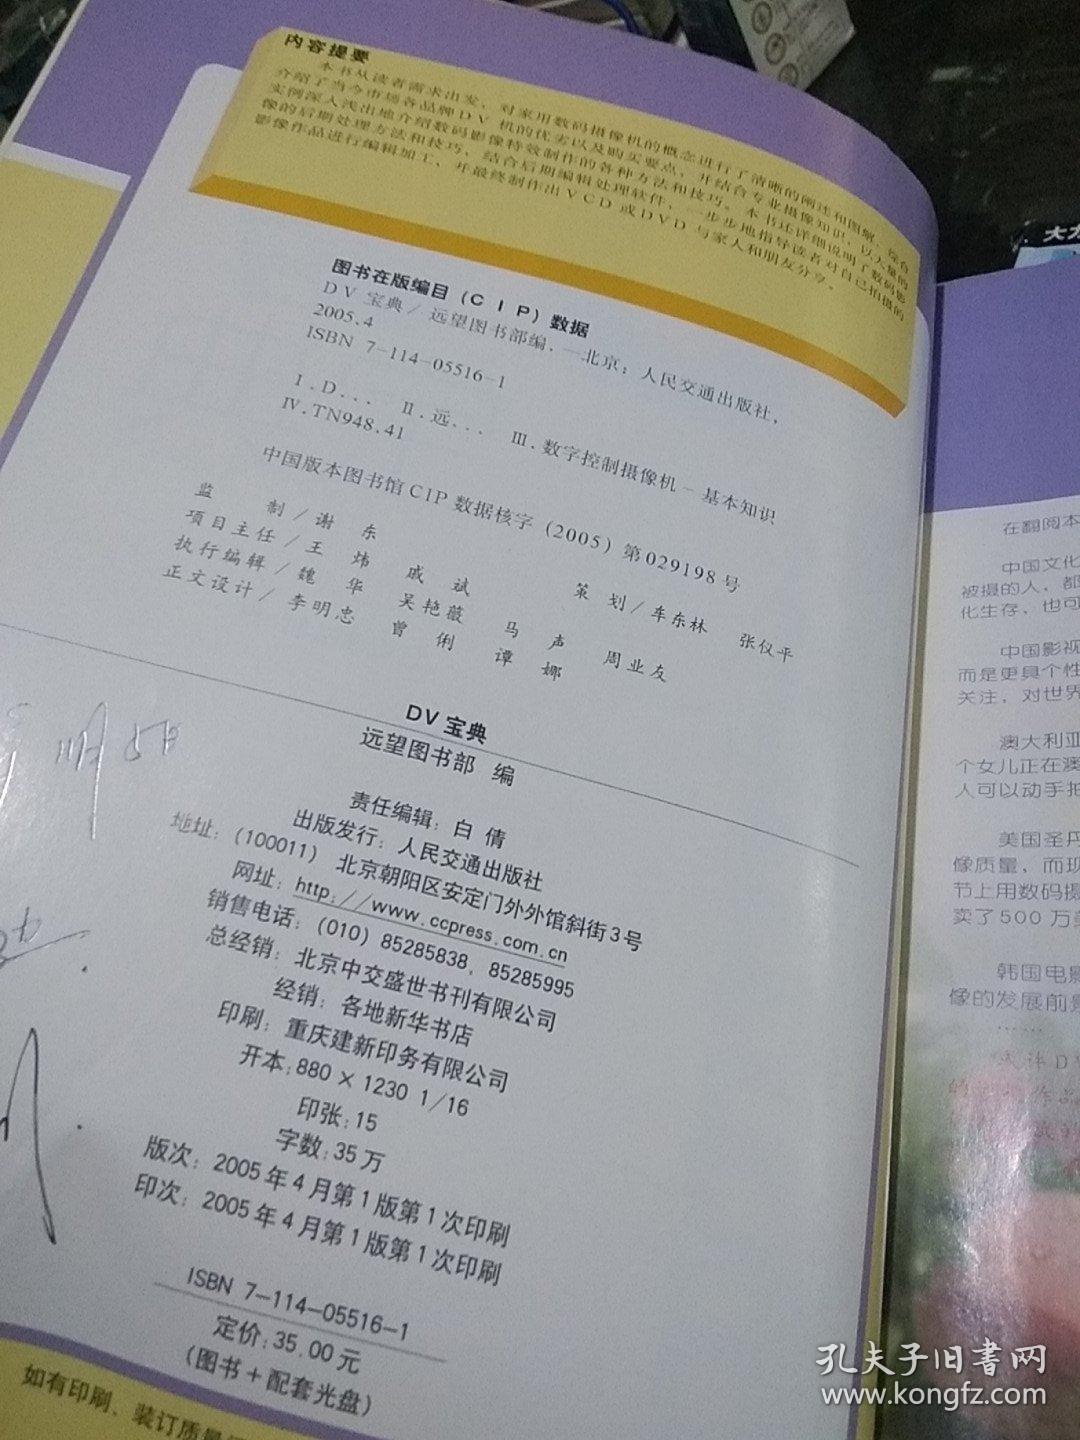 内容提要
本书从读者需求出发，对家用数码摄像机的概念进行了清晰的阐述和图解，综合
介绍了当今市场各品牌DV机的优劣以及购买要点，并结合专业摄像知识，以大量的
实例深入浅出地介绍数码影像特效制作的各种方法和技巧。本书还详细说明了数码影
像的后期处理方法和技巧，结合后期编辑处理软件，一步步地指导读者对自己拍摄的
影像作品进行编辑加工，并最终制作出VCD或DVD与家人和朋友分享。
图书在版编目（CIP）数据
DV宝典/远望图书部编.—北京：人民交通出版社，
2005.4
ISBN 7-114-05516-1
Ⅰ.D... Ⅱ.远... Ⅲ.数字控制摄像机-基本知识
Ⅳ.TN948.41
中国版本图书馆CIP数据核字（2005）第029198号
监 制/谢 东 策 划/车东林 张仪平
项目主任/王 炜 戚 斌
执行编辑/魏 华 吴艳薇 马 声 周业友
正文设计/李明忠 曾 俐 谭 娜
DV宝典
远望图书部 编
责任编辑：白 倩
出版发行：人民交通出版社
地址：(100011) 北京朝阳区安定门外外馆斜街3号
网址：http://www.ccpress.com.cn
销售电话：(010) 85285838，85285995
总经销：北京中交盛世书刊有限公司
经销：各地新华书店
印刷：重庆建新印务有限公司
开本：880×1230 1/16
印张：15
字数：35万
版次：2005年4月第1版第1次印刷
印次：2005年4月第1版第1次印刷
ISBN 7-114-05516-1
定价：35.00元
(图书＋配套光盘)
如有印刷、装订质量
在翻阅本
中国文化
被摄的人，都
化生存，也可
中国影视
而是更具个性
关注，对世界
澳大利亚
个女儿正在澳
人可以动手拍
美国圣丹
像质量，而现
节上用数码摄
卖了500万美
韩国电影
像的发展前景
……
孔夫子旧书网
www.kongfz.com